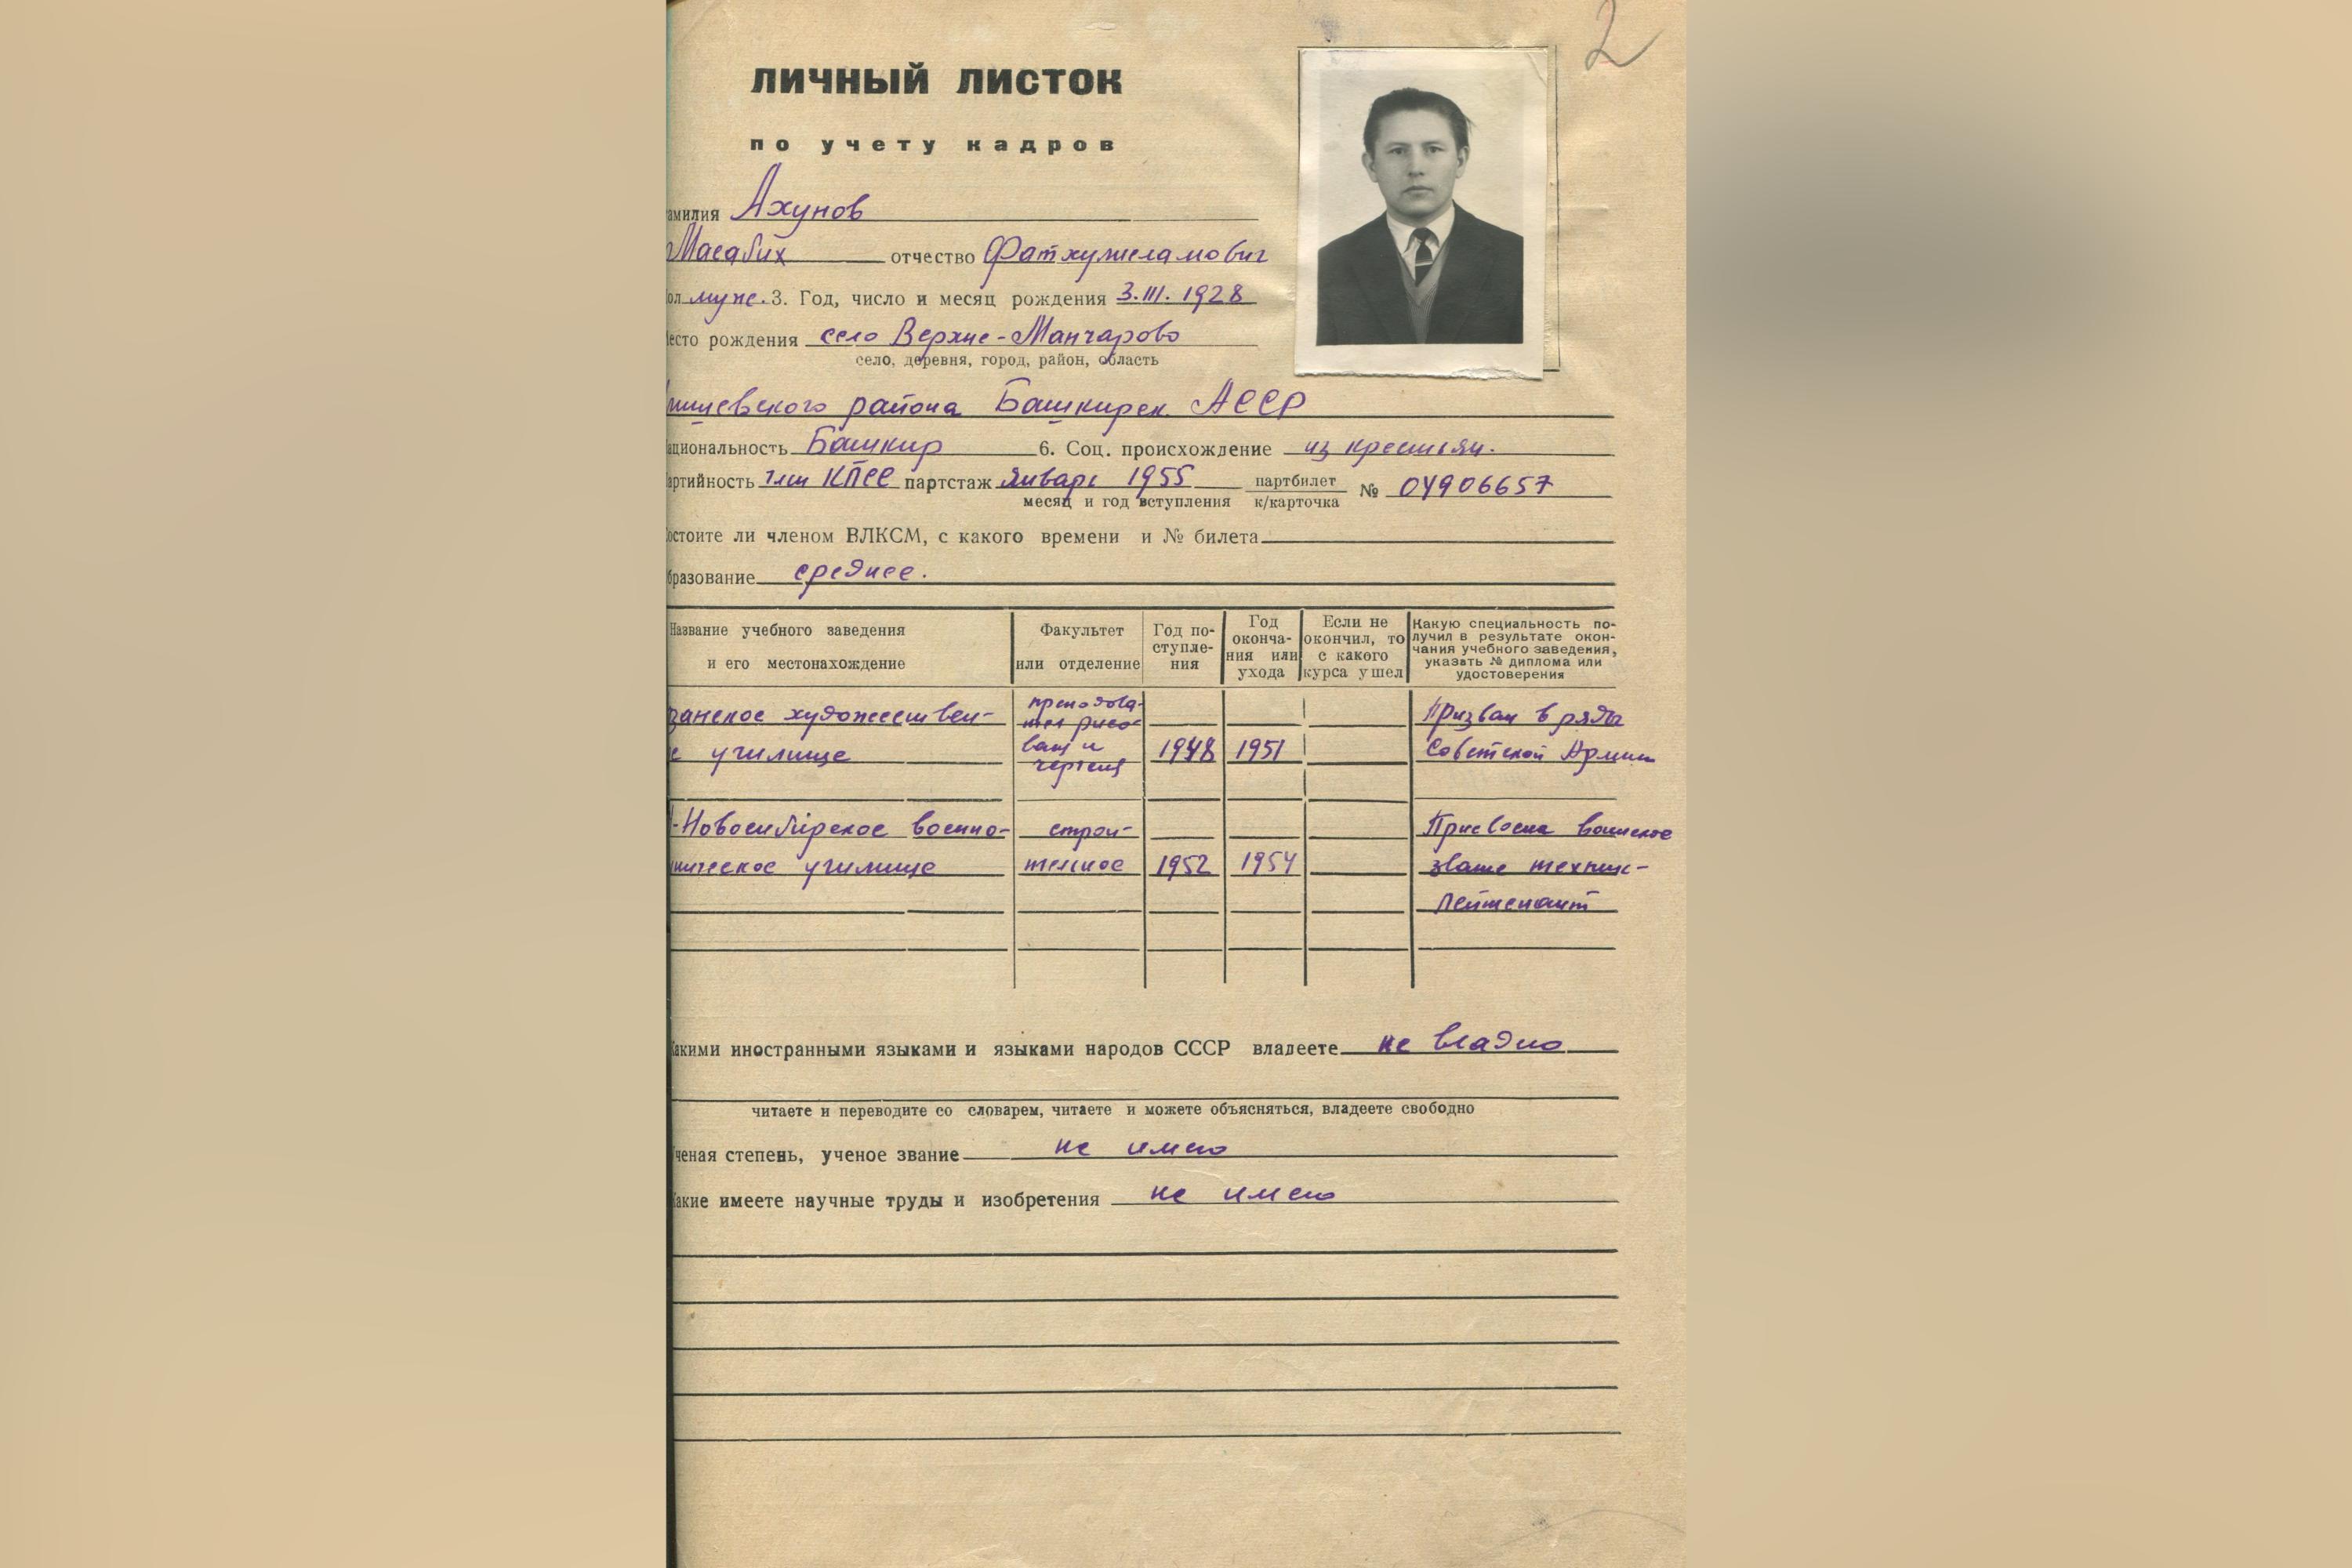 2
ЛИЧНЫЙ ЛИСТОК
по учету кадров
амилия Ахунов
Масабих отчество Фатхулисламович
ол муж. 3. Год, число и месяц рождения 3.III.1928
есто рождения село Верхне-Манчарово
село, деревня, город, район, область
района Башкирск. АССР
ациональность Башкир 6. Соц. происхождение из крестьян.
артийность член КПСС партстаж январь 1955 партбилет № 04906657
месяц и год вступления к/карточка
остоите ли членом ВЛКСМ, с какого времени и № билета
бразование среднее.
Название учебного заведения и его местонахождение
Факультет или отделение
Год по-
ступле-
ния
Год
оконча-
ния или
ухода
Если не
окончил, то
с какого
курса ушел
Какую специальность по-
лучил в результате окон-
чания учебного заведения,
указать № диплома или
удостоверения
занское художествен-
е училище
преподова-
тел рисо-
ван и
черчения
1948 1951
Призван в ряды
Советской Армии
-Новосибирское военно-
ническое училище
строи-
тельное
1952 1954
Присвоено воинское
звание техник-
лейтенант
акими иностранными языками и языками народов СССР владеете не владею
читаете и переводите со словарем, читаете и можете объясняться, владеете свободно
ченая степень, ученое звание не имею
акие имеете научные труды и изобретения не имею